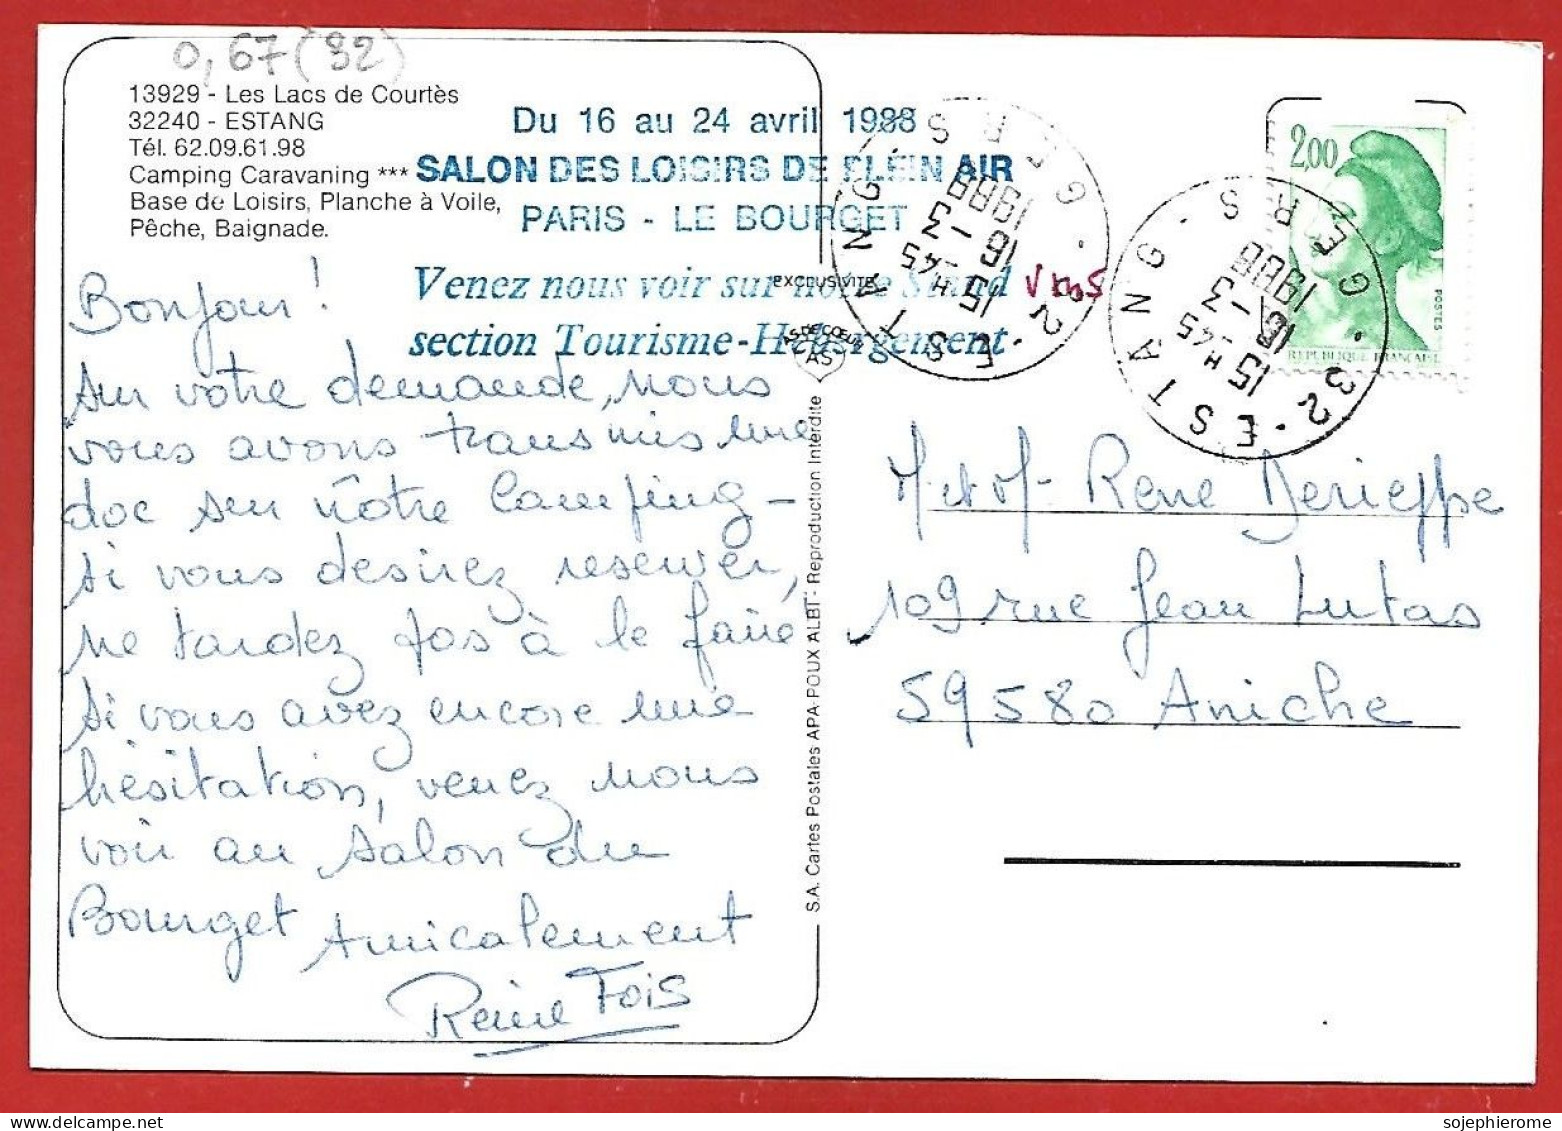 0,67 (32)
13929 - Les Lacs de Courtès
32240 - ESTANG
Tél. 62.09.61.98
Camping Caravaning ***
Base de Loisirs, Planche à Voile,
Pêche, Baignade.
Du 16 au 24 avril 1988
SALON DES LOISIRS DE PLEIN AIR
PARIS - LE BOURGET
Venez nous voir sur notre Stand
section Tourisme-Hébergement
Bonjour!
sur votre demande, nous
vous avons transmis une
doc sur nôtre Camping -
si vous desirez reserver,
ne tardez pas à le faire
si vous avez encore une
hésitation, venez nous
voir au salon du
Bourget Amicalement
Reine Fois
EXCLUSIVITE
AS DE CŒUR
AS
S.A. Cartes Postales APA-POUX ALBI - Reproduction Interdite
32 - ESTANG - GERS
15 H 45
16 - 3
1988
32 - ESTANG - GERS
15 H 45
16 - 3
1988
2,00
POSTES
REPUBLIQUE FRANÇAISE
M. et M. Rene Derieppe
109 rue Jean Lutas
59580 Aniche
sojephierome